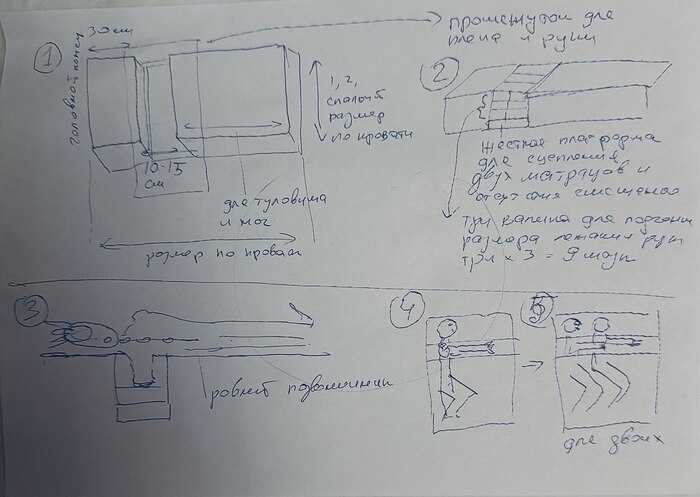 1
30 см
головной конец
промежуток для
плеча и руки
1, 2,
спальный
размер
по кровати
10-15
см
для туловища
и ног
размер по кровати
2
Жесткая платформа
для сцепления
двух матрацов и
смещения
три для подгонки
размера руки
три x 3 = 9
3
ровный позвоночник
4
5
для двоих